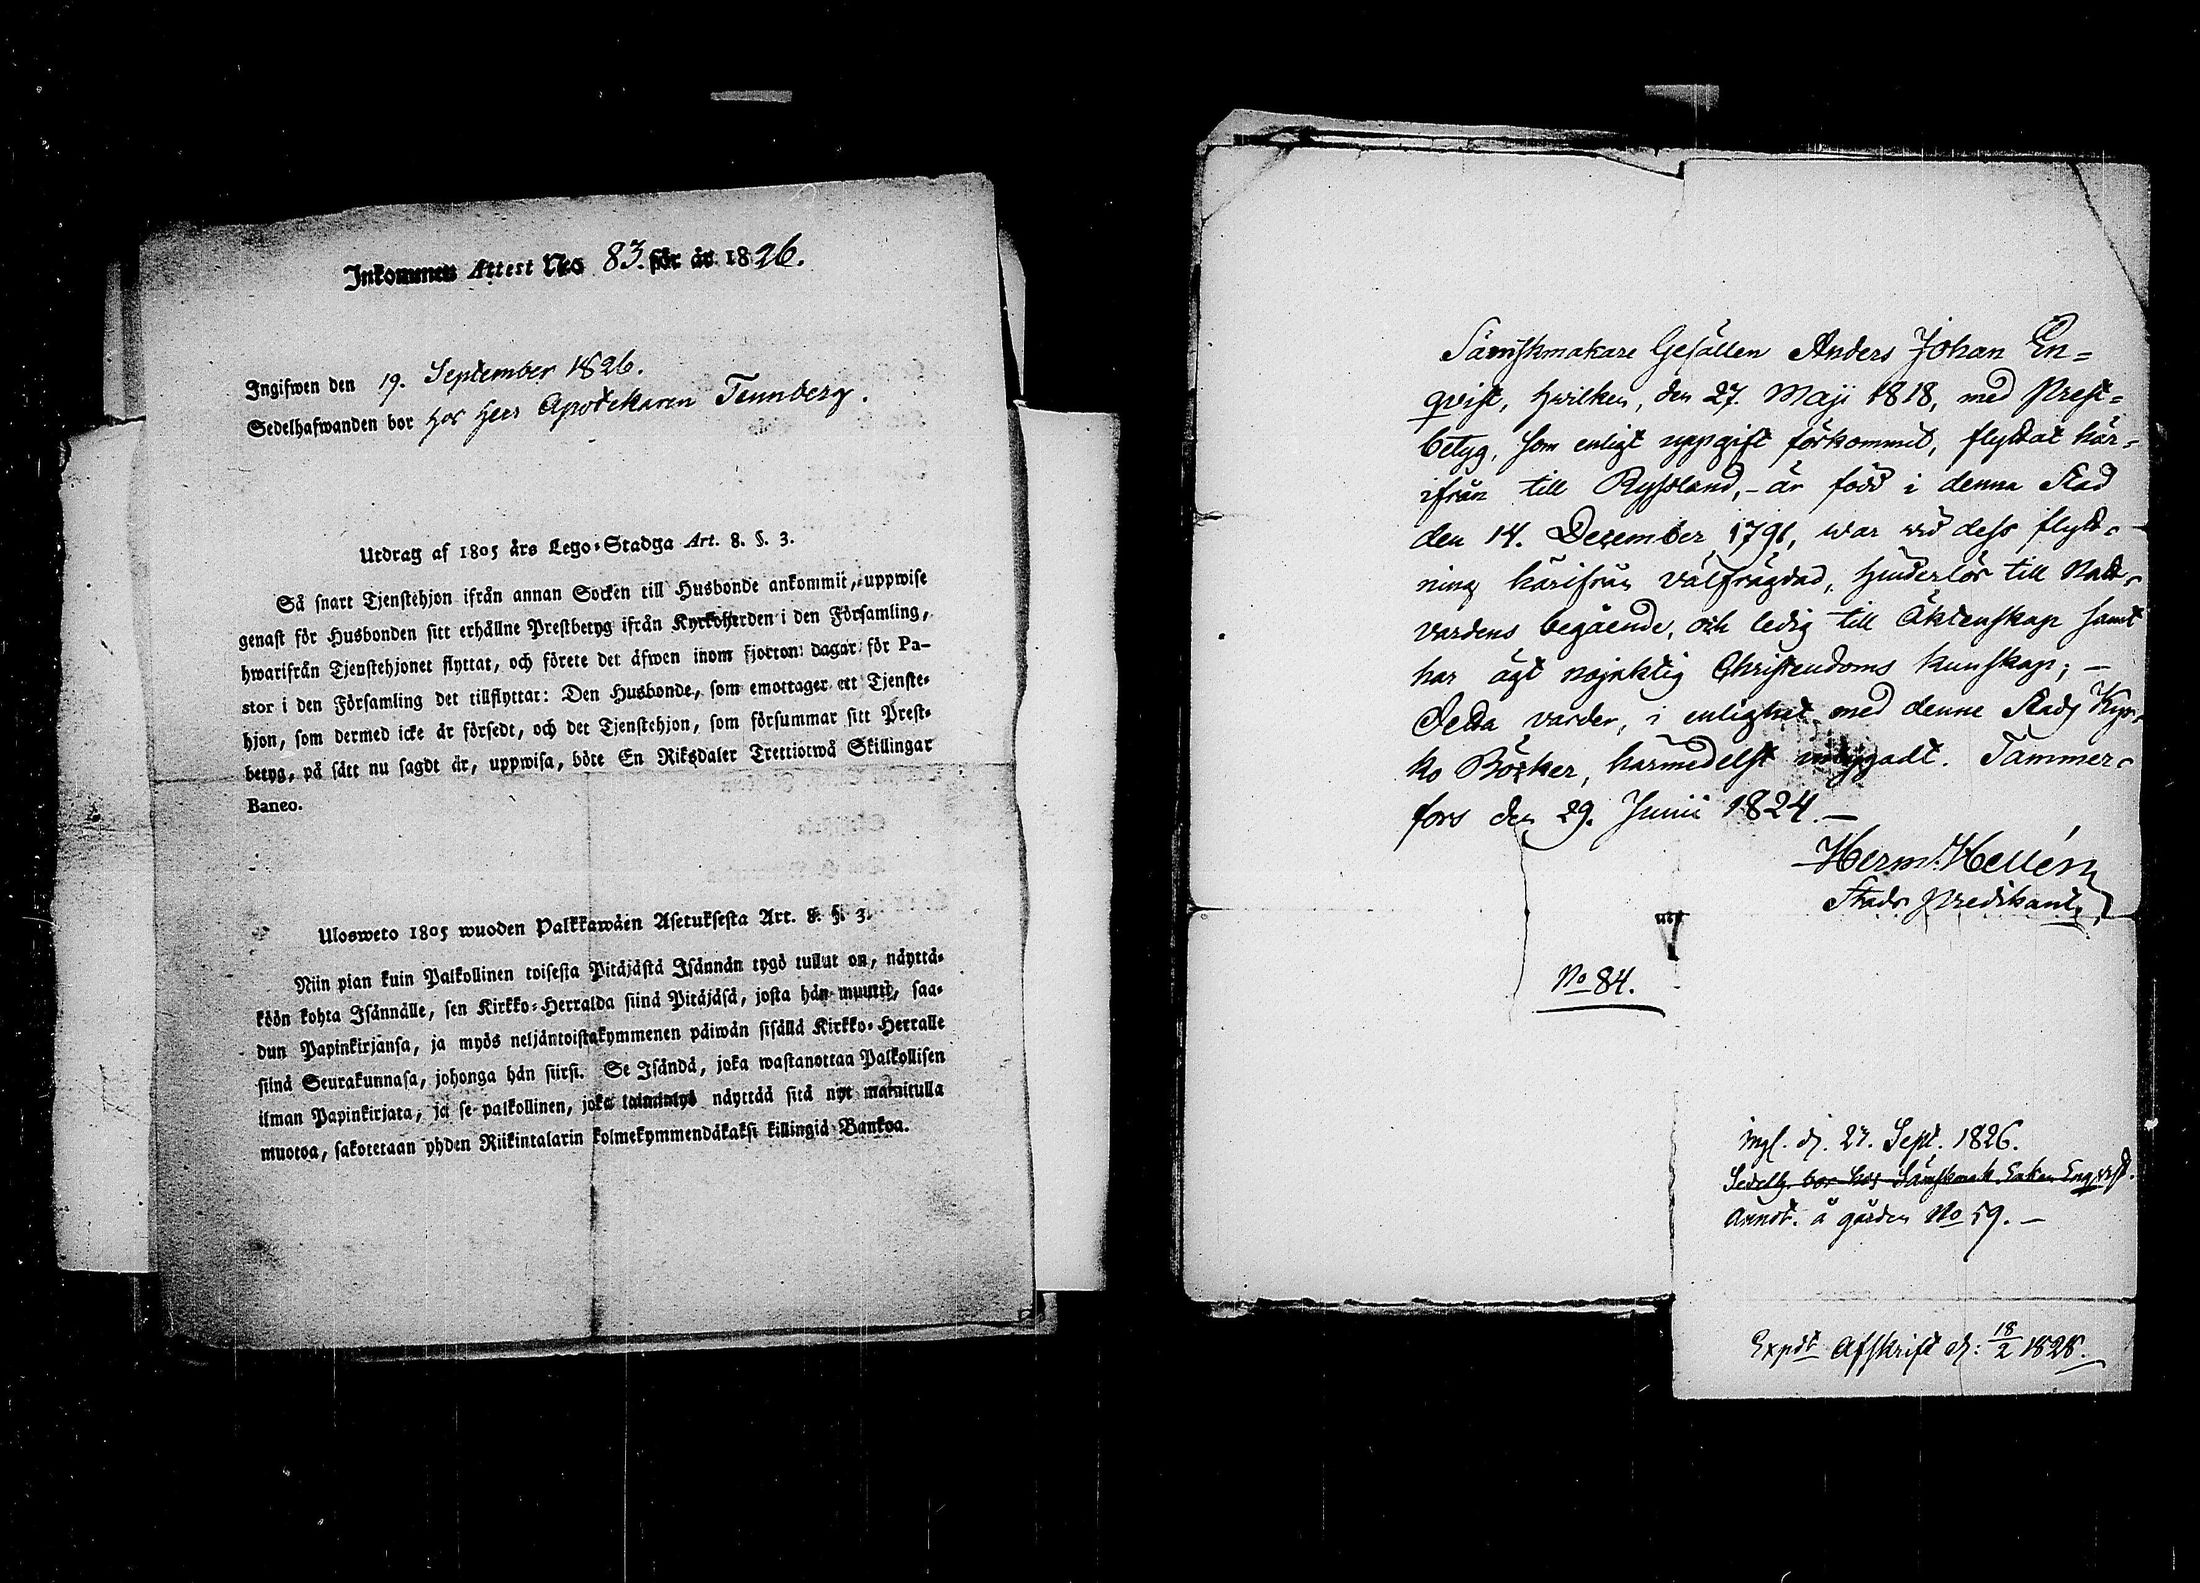 Inkommen Attest No 83. för år 1826.
Ingifwen den 19. September 1826.
Sedelhafwanden bor hos Herr Apothekaren Tennberg.
Utdrag af 1805 års Lego-Stadga Art. 8. §. 3.
Så snart Tjenstehjon ifrån annan Socken till Husbonde ankommit, uppwise
genast för Husbonden sitt erhållne Prestbetyg ifrån Kyrkoherden i den Församling,
hwarifrån Tjenstehjonet flyttat, och förete det äfwen inom fjorton dagar för Pa-
stor i den Församling det tillflyttat: Den Husbonde, som emottager ett Tjenste-
hjon, som dermed icke är försedt, och det Tjenstehjon, som försummar sitt Prest-
betyg, på sätt nu sagdt är, uppwisa, böte En Riksdaler Trettiotwå Skillingar
Banco.
Ulosweto 1805 wuoden Palkkawäen Asetuksesta Art. 8. §. 3.
Niin pian kuin Palkollinen toisesta Pitäjästä Isännän tygö tullut on, näyttä-
köön kohta Isännälle, sen Kirkko-Herralda siinä Pitäjäsä, josta hän muutti, saa-
dun Papinkirjansa, ja myös neljäntoistakymmenen päiwän sisällä Kirkko-Herralle
siinä Seurakunnasa, johonga hän siirsi. Se Isändä, joka wastanottaa Palkollisen
ilman Papinkirjata, ja se palkollinen, joka laiminlyö näyttää sitä nyt mainitulla
muotoa, sakotetaan yhden Riikintalarin kolmekymmendäkaksi killingiä Bankoa.
Sämskmakare Gesällen Anders Johan En-
qvist, hwilken, den 27. Maji 1818, med Prest-
betyg, som enligt uppgift förkommit, flyttat här-
ifrån till Ryssland, - är född i denna Stad
den 14. December 1791, war vid dess flytt-
ning härifrån välfrägdad, hinderlös till Natt-
vardens begående, och ledig till Äktenskap samt
har ägt nöjaktig Christendoms kunskap; -
Detta varder, i enlighet med denne Stads Kyr-
ko Böcker, härmedelst intygadt. Tammer-
fors den 29. Junii 1824. -
Herm. Hellén
Stads Predikant.
No 84.
ingl. d. 27. Sept. 1826.
Sedelh. bor hos Sämskmak. Enkan Enqvist.
Annot. å gården No 59. -
Expdt Afskrift d: 18/2 1828.